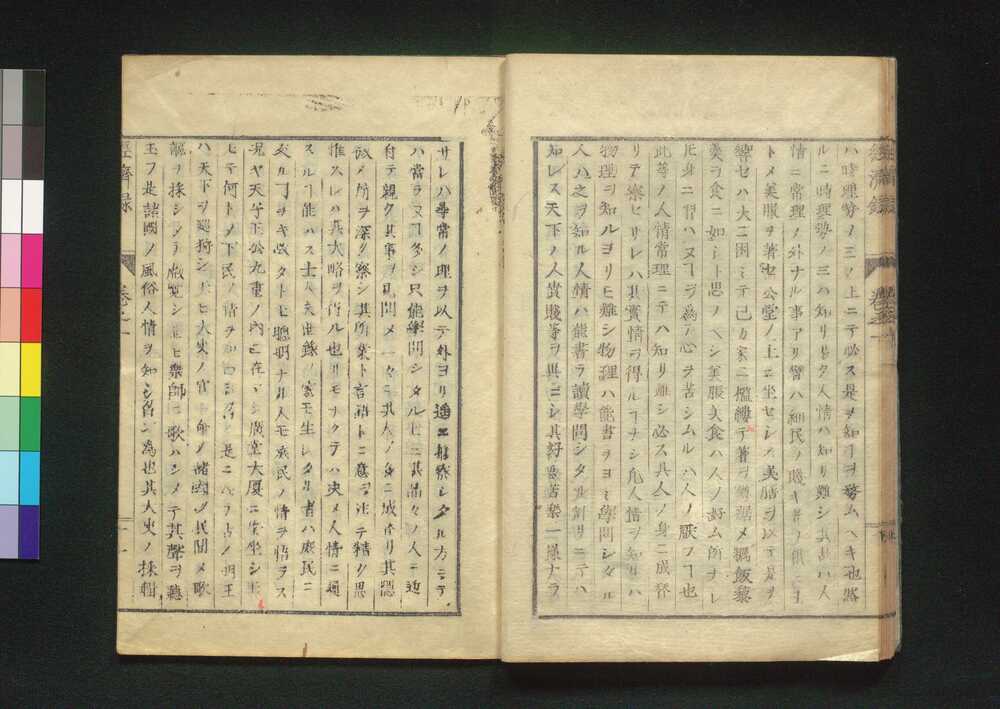 ハ時理勢ノ三ノ上ニテ必ス是ヲ知ヿヲ務ム ヘキ也然
ルニ時理勢ノ三ハ知リ易ク人情ハ知リ難シ其故ハ人
情ニ常理ノ外ナル事アリ譬ハ細民ノ賤キ者ノ俄ニ王
トメ美服ヲ著セ公堂ノ上ニ坐セシメ美膳ヲ以テ是ヲ
響セハ大ニ困ミテ己カ家ニ襤褸ヲ著ヲ 飯藜
羮ヲ食ニ如シト思フヘシ美服美食ハ人ノ好ム所ナレ
𪜈身ニ習ハヌヿヲ為テ心ヲ苦シムルハ人ノ厭フヿ也
此等ノ人情常理ニテハ知リ難シ必ス其人ノ身ニ成替
リテ察セサレハ其實情ヲ得ルヿヲシ凡人情ヲ知ルハ
物理ヲ知ルヨリモ難シ物理ハ能書ヲヨミ學問シタル
人ハ之ヲ知ル人情ハ能書ヲ讀學問シタル計リニテハ
知レス天下ノ人貴賤等ヲ異ニシ其好惡苦樂一樣ナラ
サレハ尋常ノ理ヲ以テ外ヨリ 推察シタル方ニテ
ハ當ラヌヿ多シ只能學問シタル上ニ其品々ノ人ニ近
付テ親ク其事ヲ見聞メ一々ニ其人ノ身ニ成香リ其隱
微ノ所ヲ深ク察シ其所業ト言語トニ意ヲ注テ精ク思
惟スレハ其大略ヲ得ル也サモナクテハ決メ人情ニ通
スルヿ能ハス士大夫世祿ノ家ニ生レタル者ハ庶民ニ
交ルヿヲキ故タトヒ聰明ナル人モ庶民ノ情ヲ悟ラス
况ヤ天子王公九重ノ内ニ在マシ廣堂大厦ニ坐シ玉
ヒテ何トメ下民ノ情ヲ知 是ニ因テ古ノ明王
ハ天下ヲ巡狩シ玉ヒ大史ノ官ニ命メ諸國ノ民間ノ歌
謠ヲ採シメテ叡覽シ玉ヒ樂師ニ歌ハシメテ其聲ヲ聽
玉フ是諸國ノ風俗人情ヲ知シ召ン為也其大史ノ採輯
經濟録
卷之一